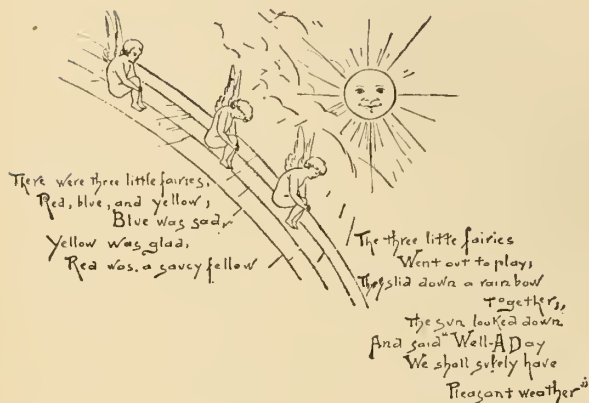 There were three little fairies,
Red, blue, and yellow;
Blue was sad,
Yellow was glad,
Red was a saucy fellow
The three little fairies
Went out to play;
They slid down a rainbow
Together,
The sun looked down
And said "Well-A Day
We shall surely have
Pleasant weather"